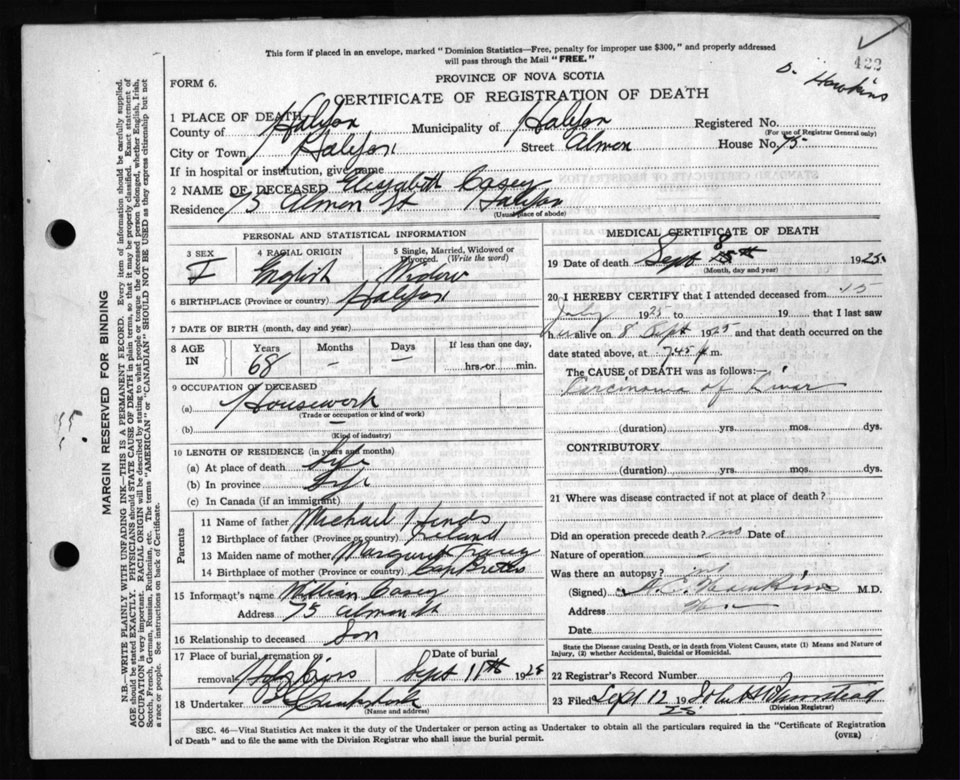 This form if placed in an envelope, marked "Dominion Statistics—Free, penalty for improper use $300," and properly addressed
will pass through the Mail "FREE."
422
D. Hawkins
FORM 6.
PROVINCE OF NOVA SCOTIA
CERTIFICATE OF REGISTRATION OF DEATH
1 PLACE OF DEATH
County of Halifax Municipality of Halifax Registered No.
(For use of Registrar General only)
City or Town Halifax Street Almon House No. 75
If in hospital or institution, give name
2 NAME OF DECEASED Elizabeth Casey
Residence 75 Almon St Halifax
(Usual place of abode)
PERSONAL AND STATISTICAL INFORMATION
3 SEX F
4 RACIAL ORIGIN English
5 Single, Married, Widowed or
Divorced. (Write the word)
Widow
6 BIRTHPLACE (Province or country) Halifax
7 DATE OF BIRTH (month, day and year)
8 AGE IN
Years 68
Months —
Days —
If less than one day,
hrs. or min.
9 OCCUPATION OF DECEASED
(a) Housework
(Trade or occupation or kind of work)
(b) —
(Kind of industry)
10 LENGTH OF RESIDENCE (in years and months)
(a) At place of death Life
(b) In province Life
(c) In Canada (if an immigrant)
Parents
11 Name of father Michael Hinds
12 Birthplace of father (Province or country) Ireland
13 Maiden name of mother Margaret
14 Birthplace of mother (Province or country) Cap Breton
15 Informant's name William Casey
Address 75 Almon St
16 Relationship to deceased Son
17 Place of burial, cremation or
removal Holy Cross
Date of burial
Sept 11th 1925
18 Undertaker
(Name and address)
MEDICAL CERTIFICATE OF DEATH
19 Date of death Sept 8 1925
(Month, day and year)
20 I HEREBY CERTIFY that I attended deceased from 15
July 1925 to 19 that I last saw
her alive on 8 Sept 1925 and that death occurred on
date stated above, at 7.45 p m.
The CAUSE of DEATH was as follows:
Carcinoma of Liver
(duration) yrs. mos. dys.
CONTRIBUTORY
(duration) yrs. mos. dys.
21 Where was disease contracted if not at place of death?
Did an operation precede death? no Date of
Nature of operation —
Was there an autopsy? no
(Signed) M.D.
Address
Date
State the Disease causing Death, or in death from Violent Causes, state (1) Means and Nature of
Injury, (2) whether Accidental, Suicidal or Homicidal.
22 Registrar's Record Number
23 Filed Sept 12 1925
(Division Registrar)
SEC. 46—Vital Statistics Act makes it the duty of the Undertaker or person acting as Undertaker to obtain all the particulars required in the "Certificate of Registration
of Death" and to file the same with the Division Registrar who shall issue the burial permit.
(OVER)
MARGIN RESERVED FOR BINDING
N.B.—WRITE PLAINLY WITH UNFADING INK—THIS IS A PERMANENT RECORD. Every item of information should be carefully supplied.
AGE should be stated EXACTLY. PHYSICIANS should STATE CAUSE OF DEATH in plain terms, so that it may be properly classified. Exact statement of
OCCUPATION is very important. RACIAL ORIGIN will be described by stating to what people or tongue the deceased person belonged, whether English, Irish,
Scotch, French, German, Russian, Ruthenian, etc. The terms "AMERICAN" or "CANADIAN" SHOULD NOT BE USED as they express citizenship but not
a race or people. See instructions on back of Certificate.